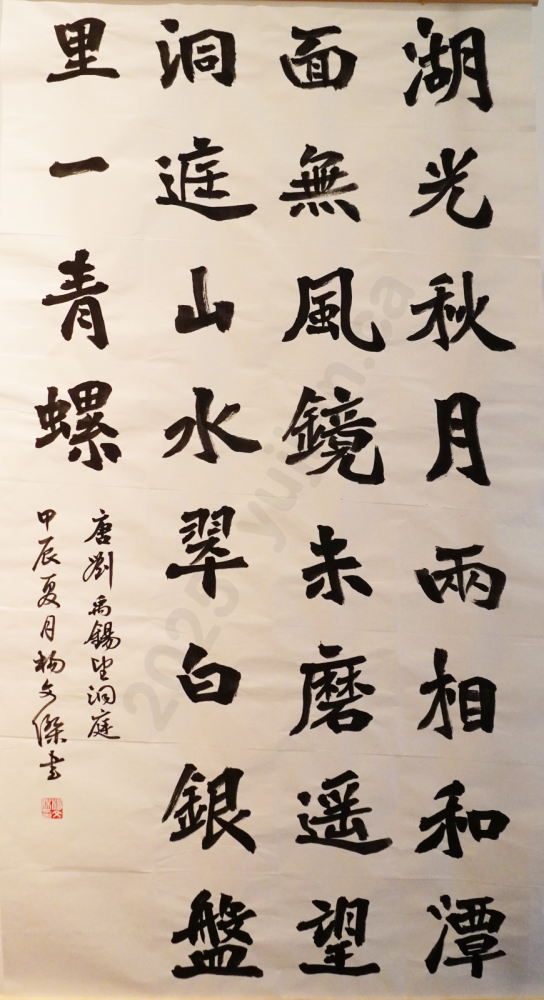 湖光秋月兩相和潭
面無風鏡未磨遥望
洞庭山水翠白銀盤
里一青螺
唐劉禹錫望洞庭
甲辰夏月楊文傑書
2025 yujian.ca